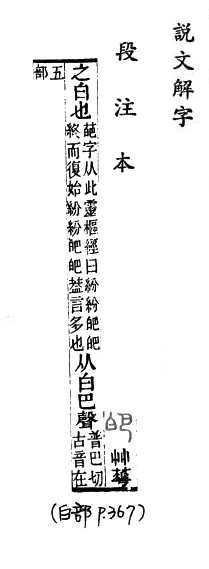 說文解字
段注本
皅
艸華
之白也葩字从此靈樞經曰紛紛皅皅
終而復始紛紛皅皅葢言多也从白巴聲普巴切
古音在
五部
(白部 P.367)